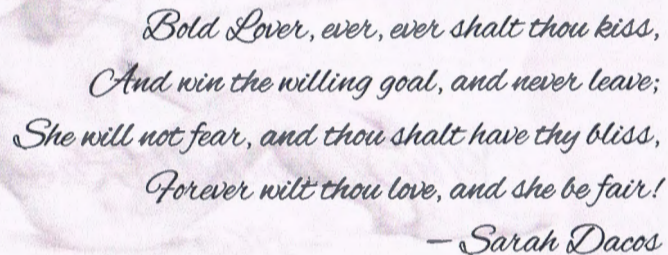 Bold Lover, ever, ever shalt thou kiss,
And win the willing goal, and never leave;
She will not fear, and thou shalt have thy bliss,
Forever wilt thou love, and she be fair!
— Sarah Dacos